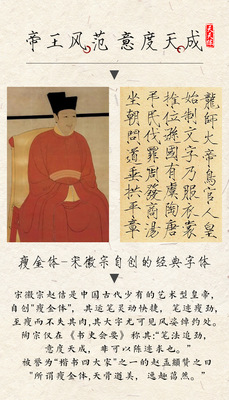 帝王风范 意度天成
龍師火帝鳥官人皇
始制文字乃服衣裳
推位遜國有虞陶唐
弔民伐罪周發商湯
坐朝問道垂拱平章
瘦金体-宋徽宗自创的经典字体
宋徽宗赵佶是中国古代少有的艺术型皇帝,
自创"瘦金体", 其运笔灵动快捷, 笔迹瘦劲,
至瘦而不失其肉,其大字尤可见风姿绰约处。
陶宗仪在《书史会要》称其:"笔法追劲,
意度天成, 非可以陈迹求也。"
被誉为"楷书四大家"之一的赵孟頫赞之曰
"所谓瘦金体,天骨遒美, 逸趣蔼然。"